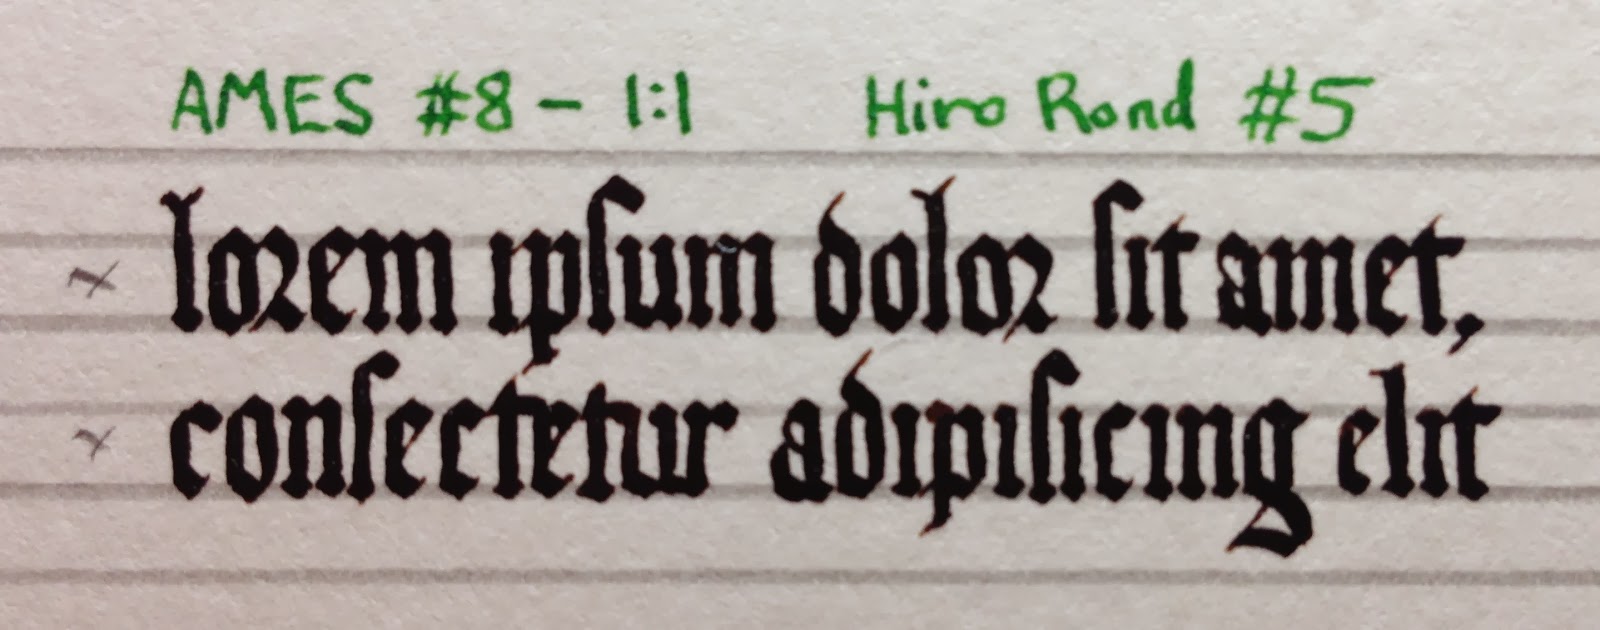 AMES #8 - 1:1 Hiro Rond #5
loꝛem ıpſum doloꝛ ſıt amet,
conſectetur adıpıſıcıng elıt